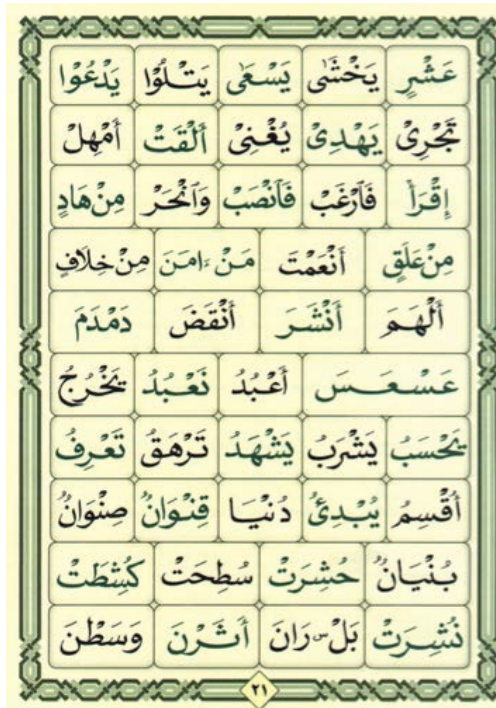 عَشْرٍ يَخْشَىٰ يَسْعَىٰ يَتْلُوْا يَدْعُوْا
تَجْرِيْ يَهْدِيْ يُغْنِيْ أَلْقَتْ أَمْهِلْ
إِقْرَأْ فَارْغَبْ فَانْصَبْ وَانْحَرْ مِنْ هَادٍ
مِنْ عَلَقٍ أَنْعَمْتَ مَنْ ءَامَنَ مِنْ خِلَافٍ
أَلْهَمَ أَنْشَرَ أَنْقَضَ دَمْدَمَ
عَسْعَسَ أَعْبُدُ نَعْبُدُ يَخْرُجُ
يَحْسَبُ يَشْرَبُ يَشْهَدُ تَرْهَقُ تَعْرِفُ
أُقْسِمُ يُبْدِئُ دُنْيَا قِنْوَانٌ صِنْوَانٌ
بُنْيَانٌ حُشِرَتْ سُطِحَتْ كُشِطَتْ
نُشِرَتْ بَلْ س رَانَ أَثَرْنَ وَسَطْنَ
٢١